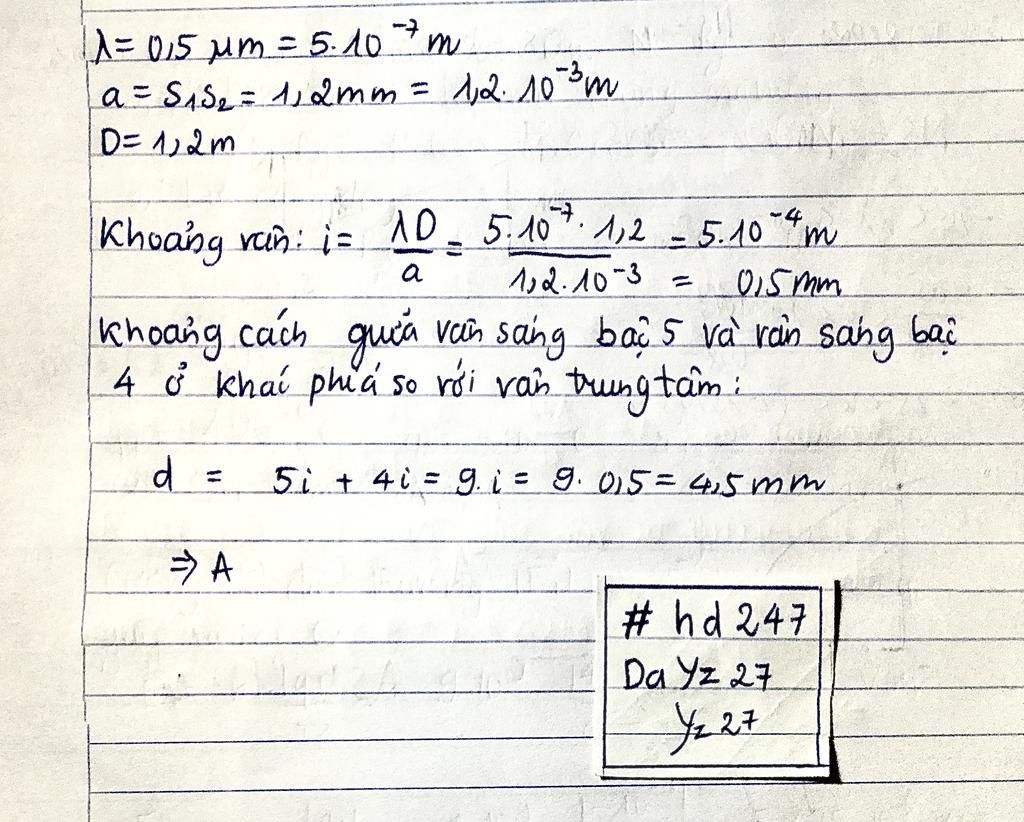 λ = 0,5 μm = 5.10⁻⁷ m
a = S₁S₂ = 1,2mm = 1,2.10⁻³m
D = 1,2m
Khoảng vân: i = λD/a = 5.10⁻⁷.1,2/1,2.10⁻³ = 5.10⁻⁴m
= 0,5mm
Khoảng cách giữa vân sáng bậc 5 và vân sáng bậc
4 ở khác phía so với vân trung tâm:
d = 5i + 4i = 9.i = 9.0,5 = 4,5mm
⇒ A
# hd 247
Da Yz 27
Yz 27